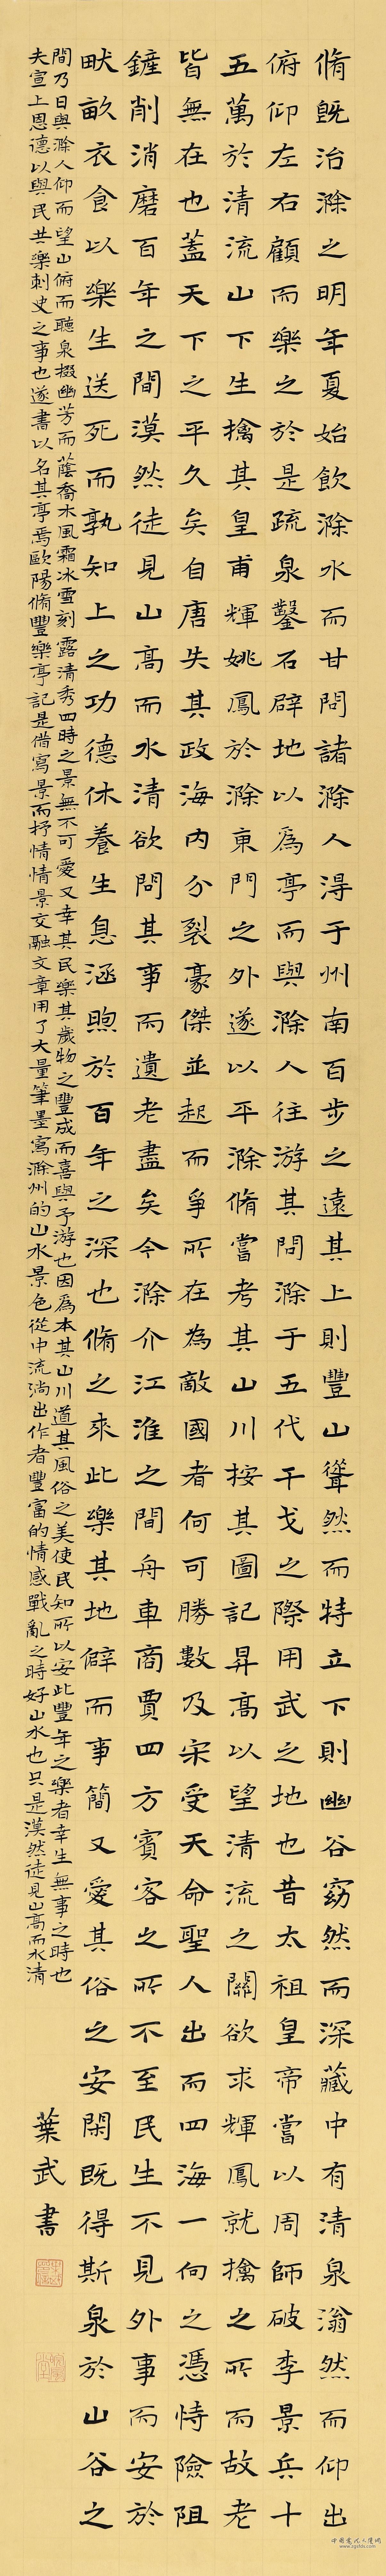 脩既治滁之明年夏始飲滁水而甘問諸滁人淂于州南百步之遠其上則豐山聳然而特立下則幽谷窈然而深藏中有清泉滃然而仰出
俯仰左右顧而樂之於是疏泉鑿石辟地以爲亭而與滁人往游其問滁于五代干戈之際用武之地也昔太祖皇帝嘗以周師破李景兵十
五萬於清流山下生擒其皇甫輝姚鳳於滁東門之外遂以平滁脩嘗考其山川按其圖記昇高以望清流之關欲求輝鳳就擒之所而故老
皆無在也蓋天下之平久矣自唐失其政海內分裂豪傑並起而爭所在為敵國者何可勝數及宋受天命聖人出而四海一向之憑恃險阻
鏟削消磨百年之間漠然徒見山高而水清欲問其事而遺老盡矣今滁介江淮之間舟車商賈四方賓客之所不至民生不見外事而安於
畎畝衣食以樂生送死而孰知上之功德休養生息涵煦於百年之深也脩之來此樂其地僻而事簡又愛其俗之安閑既得斯泉於山谷之
間乃日與滁人仰而望山俯而聽泉掇幽芳而蔭喬木風霜冰雪刻露清秀四時之景無不可愛又幸其民樂其歲物之豐成而喜與予游也因爲本其山川道其風俗之美使民知所以安此豐年之樂者幸生無事之時也
夫宣上恩德以與民共樂刺史之事也遂書以名其亭焉歐陽脩豐樂亭記是借寫景而抒情情景交融文章用了大量筆墨寫滁州的山水景色從中流淌出作者豐富的情感戰亂之時好山水也只是漠然徒見山高而水清
葉武書